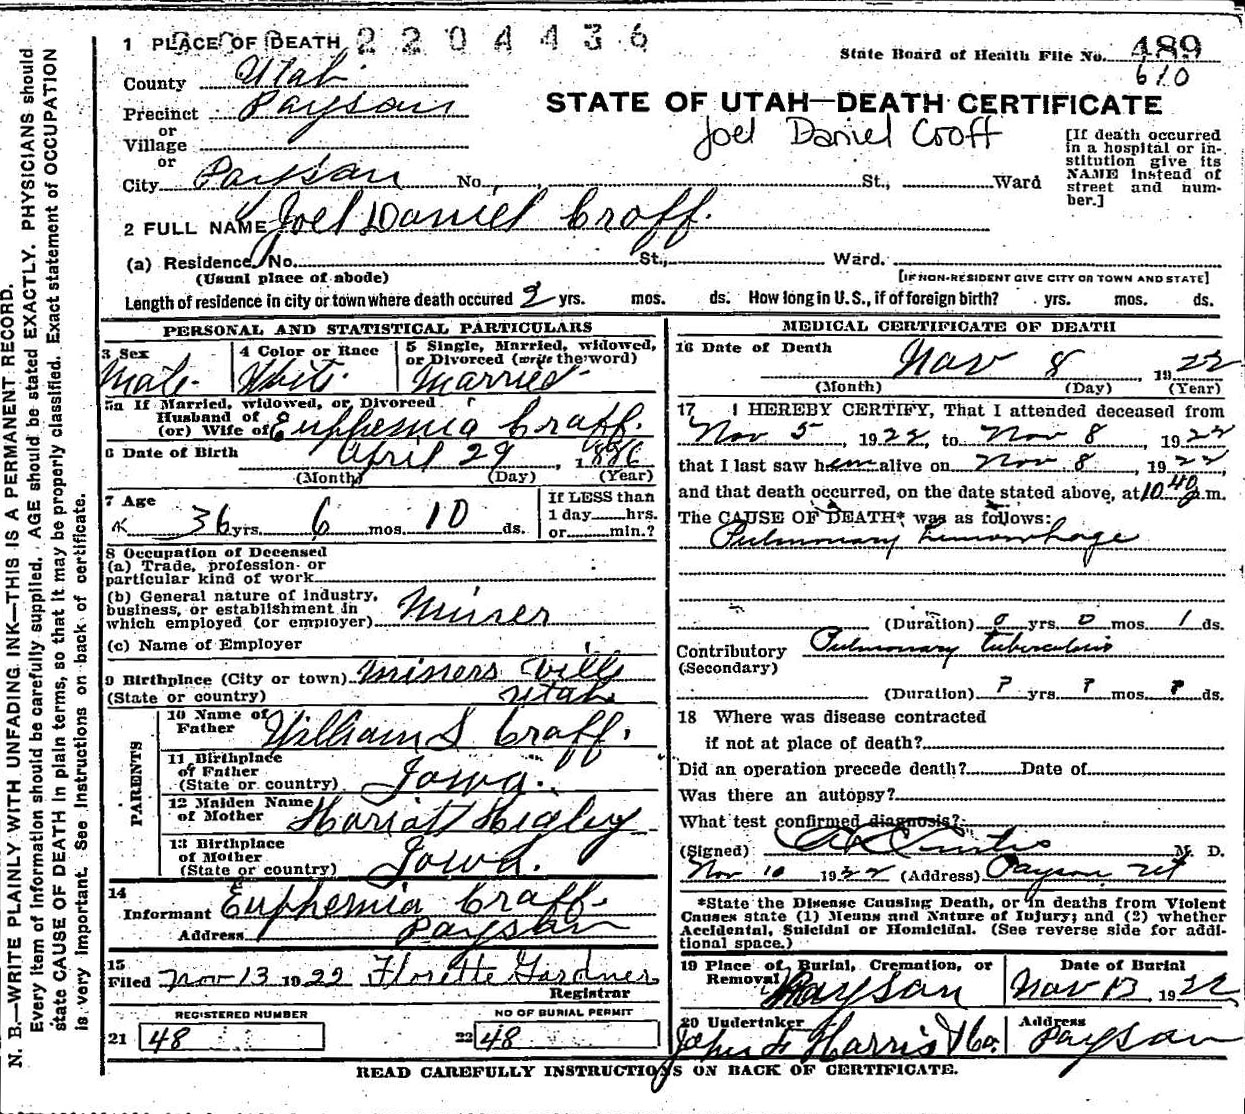 N. B.—WRITE PLAINLY WITH UNFADING INK—THIS IS A PERMANENT RECORD.
Every item of information should be carefully supplied. AGE should be stated EXACTLY. PHYSICIANS should
state CAUSE OF DEATH in plain terms, so that it may be properly classified. Exact statement of OCCUPATION
is very important. See instructions on back of certificate.
1 PLACE OF DEATH 2204436
State Board of Health File No. 489
610
County Utah
Precinct Payson
or
Village
or
City Payson No. St., Ward
STATE OF UTAH—DEATH CERTIFICATE
Joel Daniel Croff
[If death occurred
in a hospital or in-
stitution give its
NAME instead of
street and num-
ber.]
2 FULL NAME Joel Daniel Croff.
(a) Residence, No. St., Ward.
(Usual place of abode) [IF NON-RESIDENT GIVE CITY OR TOWN AND STATE]
Length of residence in city or town where death occured 2 yrs. mos. ds. How long in U.S., if of foreign birth? yrs. mos. ds.
PERSONAL AND STATISTICAL PARTICULARS
3 Sex
Male
4 Color or Race
White
5 Single, Married, widowed,
or Divorced (write the word)
Married
5a If Married, widowed, or Divorced
Husband of
(or) Wife of Euphemia Croff.
6 Date of Birth April 29, 1886
(Month) (Day) (Year)
7 Age
36 yrs. 6 mos. 10 ds.
If LESS than
1 day hrs.
or min.?
8 Occupation of Deceased
(a) Trade, profession or
particular kind of work
(b) General nature of industry,
business, or establishment in
which employed (or employer) Miner
(c) Name of Employer
9 Birthplace (City or town) Miners Ville
(State or country) Utah
PARENTS
10 Name of
Father William S Croff.
11 Birthplace
of Father
(State or country) Iowa.
12 Maiden Name
of Mother Hariat Higley
13 Birthplace
of Mother
(State or country) Iowa.
14
Informant Euphemia Croff.
Address Payson
15
Filed Nov 13 1922 Florette Gardner
Registrar
REGISTERED NUMBER
21 48
NO OF BURIAL PERMIT
22 48
MEDICAL CERTIFICATE OF DEATH
16 Date of Death Nov 8, 1922
(Month) (Day) (Year)
17 I HEREBY CERTIFY, That I attended deceased from
Nov 5, 1922, to Nov 8, 1922
that I last saw him alive on Nov 8, 1922
and that death occurred, on the date stated above, at 10 40 m.
The CAUSE OF DEATH* was as follows:
Pulmonary hemorrhage
(Duration) 0 yrs. 0 mos. 1 ds.
Contributory Pulmonary tuberculosis
(Secondary)
(Duration) ? yrs. ? mos. ? ds.
18 Where was disease contracted
if not at place of death?
Did an operation precede death? Date of
Was there an autopsy?
What test confirmed diagnosis?
(Signed) Curtis M. D.
Nov 10 1922 (Address) Payson Ut
*State the Disease Causing Death, or in deaths from Violent
Causes state (1) Means and Nature of Injury; and (2) whether
Accidental, Suicidal or Homicidal. (See reverse side for addi-
tional space.)
19 Place of Burial, Cremation, or
Removal Payson
Date of Burial
Nov 13 1922
20 Undertaker
Harris & Co.
Address
Payson
READ CAREFULLY INSTRUCTIONS ON BACK OF CERTIFICATE.